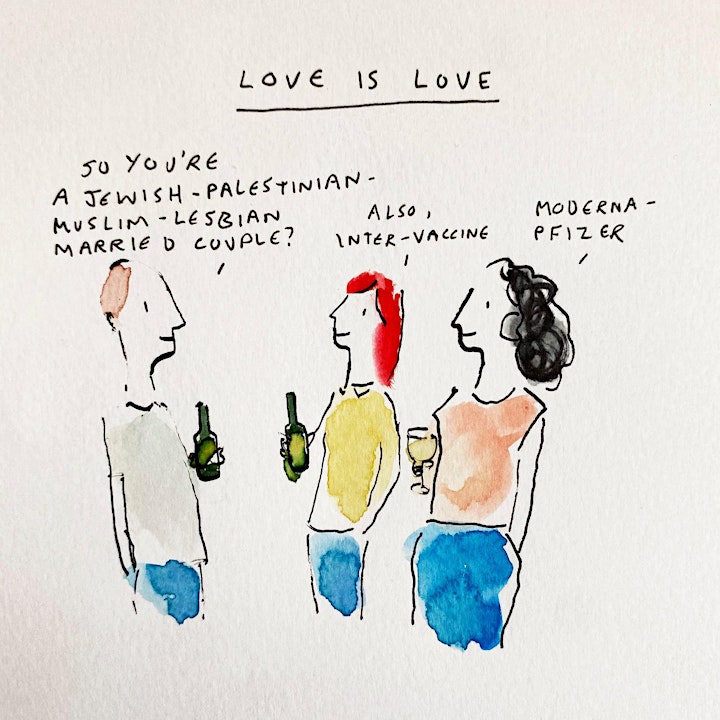 LOVE IS LOVE
SO YOU'RE
A JEWISH-PALESTINIAN-
MUSLIM-LESBIAN
MARRIED COUPLE?
ALSO,
INTER-VACCINE
MODERNA-
PFIZER